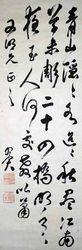 青山隱々水迢々秋盡江南
草未凋二十四橋明月
夜玉人何處教吹簫